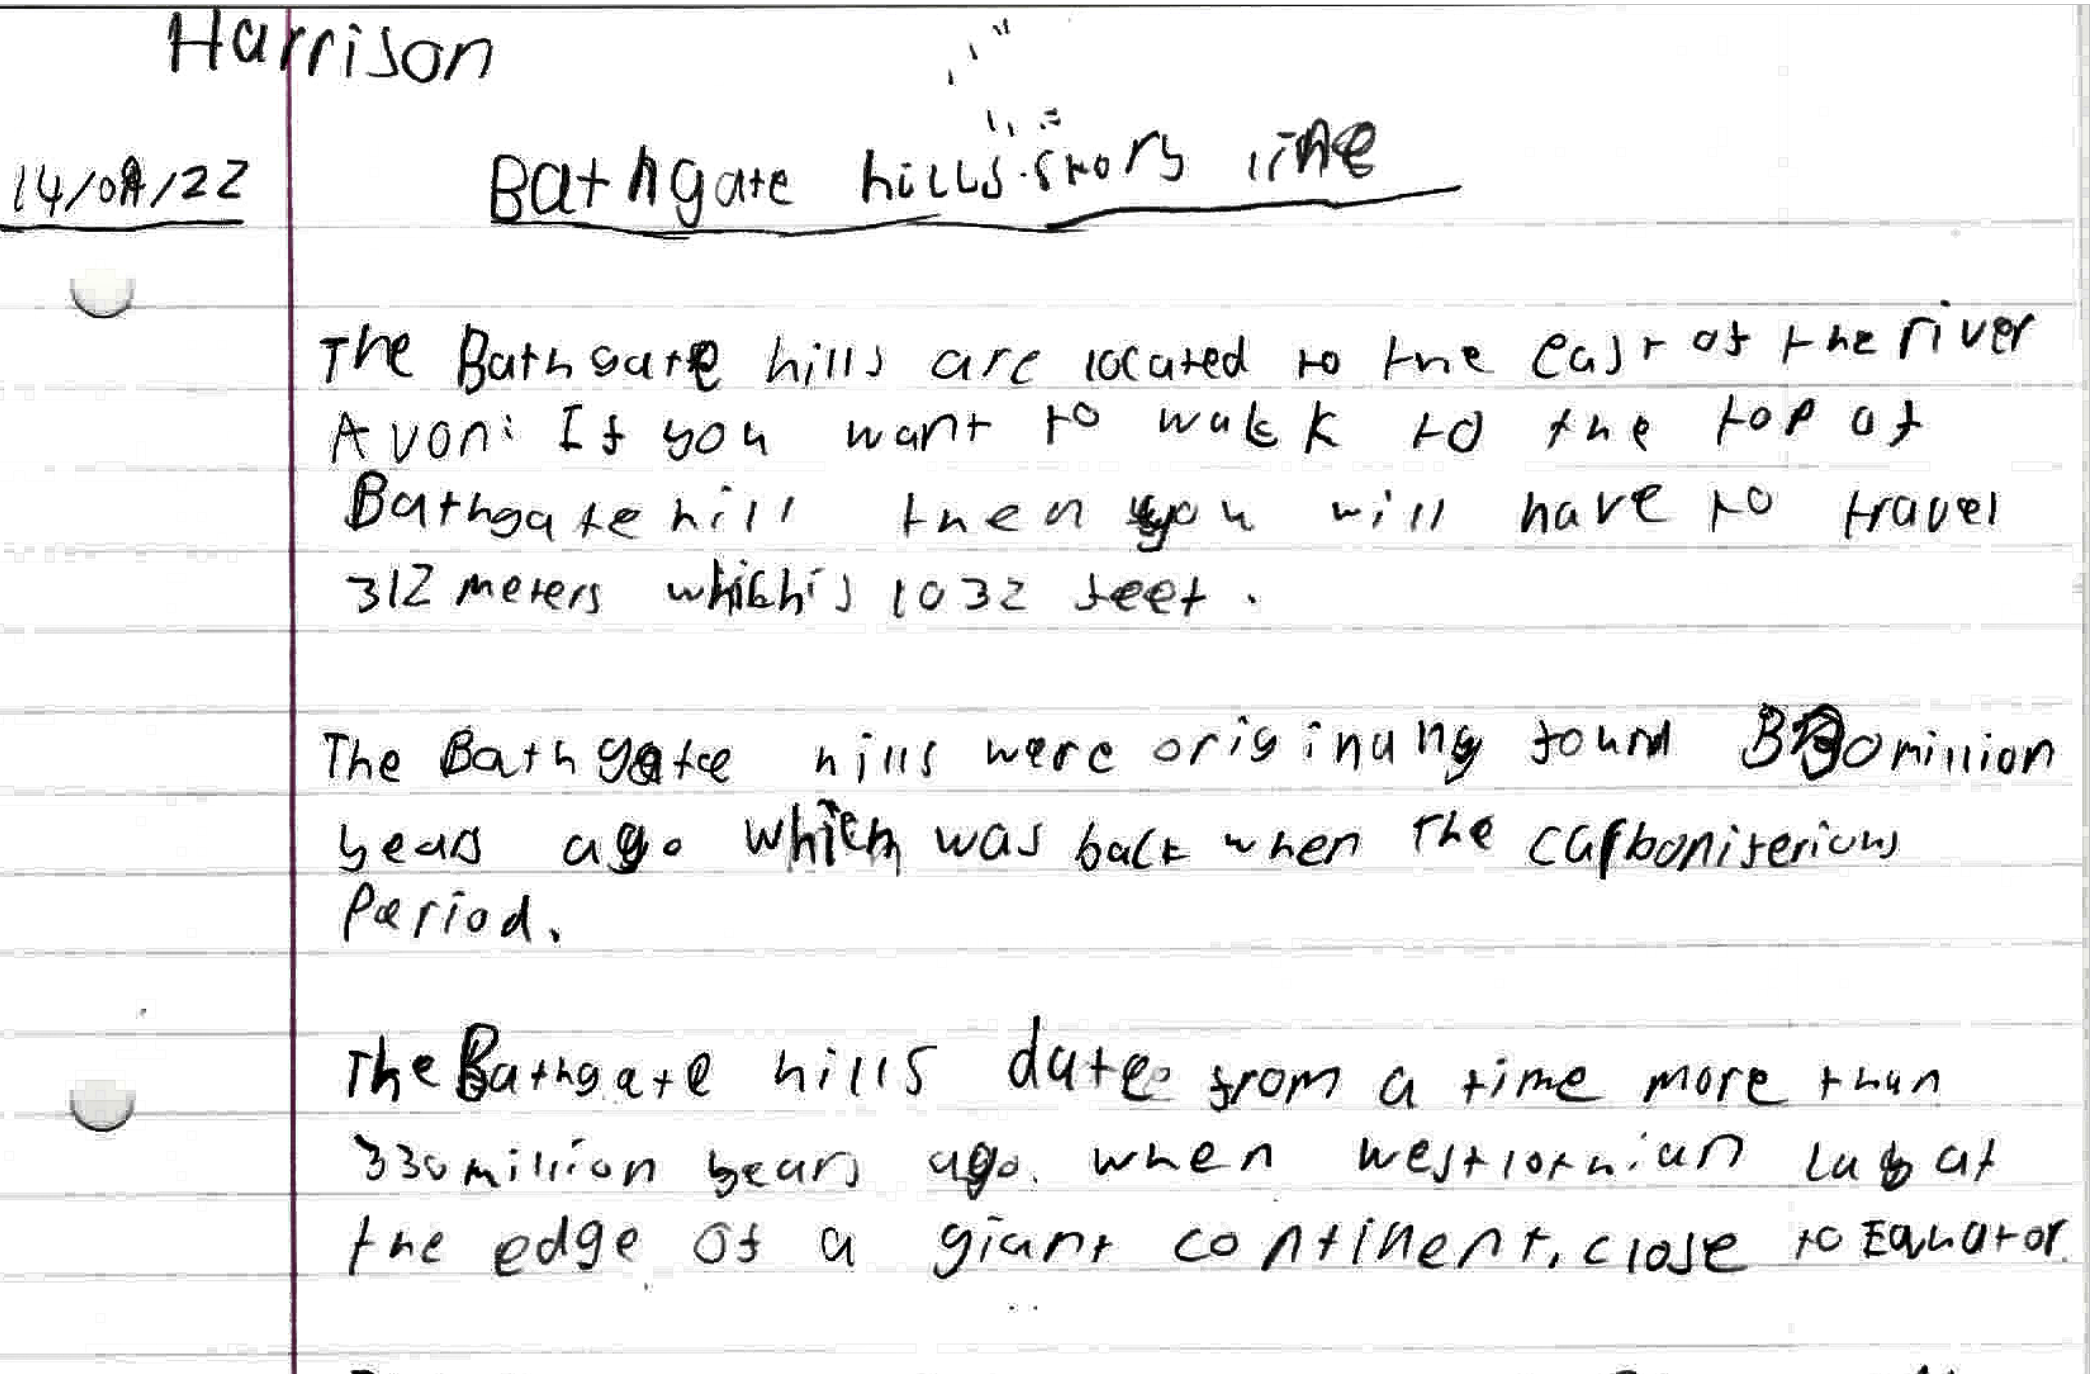 Harrison
14/09/22 Bathgate hills story line
The Bathgate hills are located to the east of the river
Avon. If you want to walk to the top of
Bathgate hill then you will have to travel
312 meters which is 1032 feet.
The Bathgate hills were originally found 330 million
years ago which was back when the carboniferious
Period.
The Bathgate hills date from a time more than
330 million years ago. when westlothian lay at
the edge of a giant continent, close to Equator.